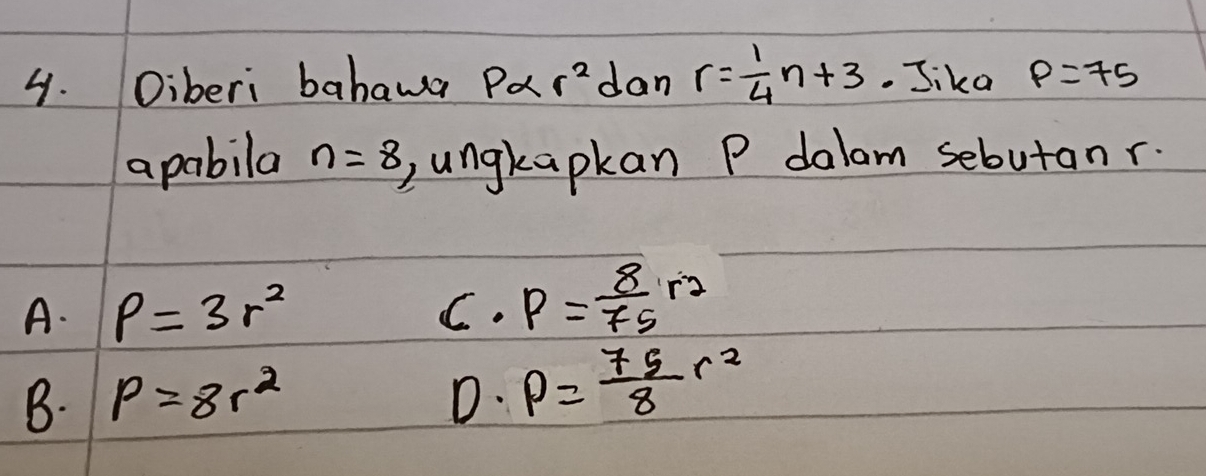 4. Diberi bahawa P∝r² dan r=1/4 n+3. Jika P=75
apabila n=8, ungkapkan P dalam sebutan r.
A. P=3r² C. P=8/75 r²
B. P=8r² D. P=75/8 r²